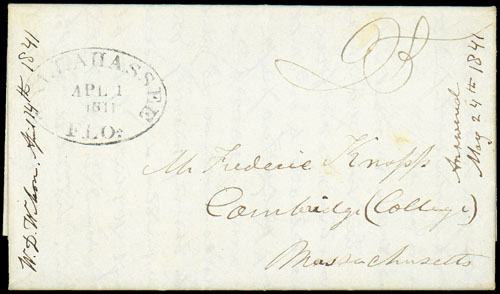 W. D. Wilson. Apr 14th 1841
TALLAHASSEE
APL 1
1841
FLO:
25
Answered
May 24th 1841
Mr Frederic Knapp
Cambridge (College)
Massachusetts